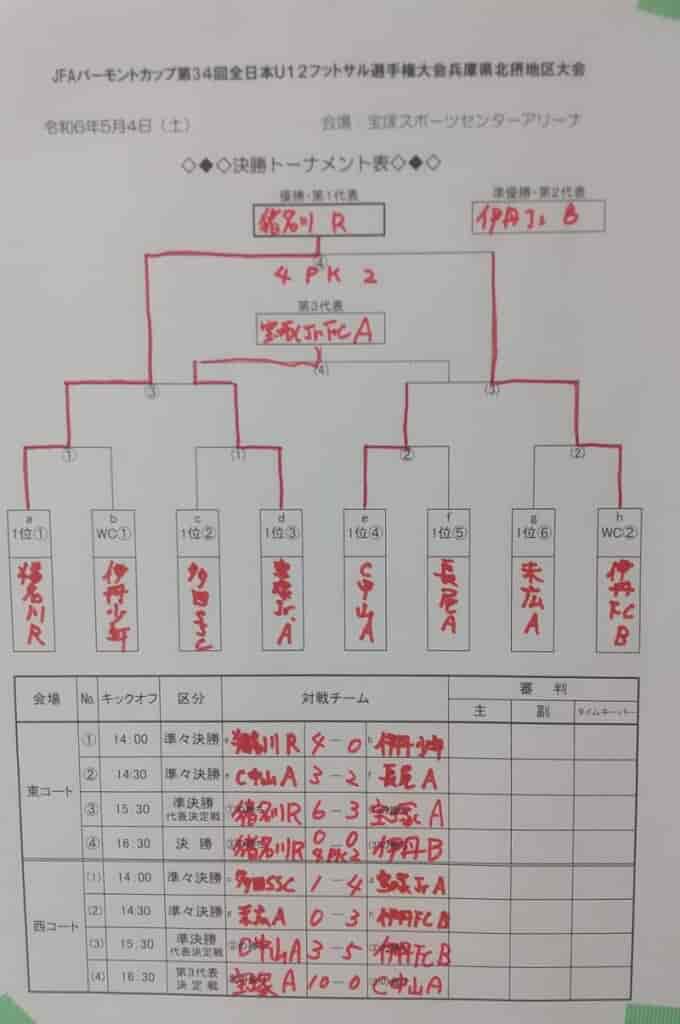 JFAバーモントカップ第34回全日本U12フットサル選手権大会兵庫県北摂地区大会
令和6年5月4日(土) 会場 宝塚スポーツセンターアリーナ
◇◆◇決勝トーナメント表◇◆◇
優勝・第1代表 準優勝・第2代表
猪名川 R 伊丹Jr B
④
4 PK 2
第3代表
宝塚Jr.FC A
(4)
③ (3)
① (1) ② (2)
a b c d e f g h
1位① WC① 1位② 1位③ 1位④ 1位⑤ 1位⑥ WC②
猪名川R 伊丹少年 多田SSC 宝塚Jr.A C中山A 長尾A 末広A 伊丹FCB
会場 No. キックオフ 区分 対戦チーム 審判
主 副 タイムキーパー
東コート
① 14:00 準々決勝 a 猪名川R 4-0 b 伊丹少年
② 14:30 準々決勝 e C中山A 3-2 f 長尾A
③ 15:30 準決勝 代表決定戦 猪名川R 6-3 宝塚 A
④ 16:30 決勝 猪名川R 0-0 4PK2 伊丹B
西コート
(1) 14:00 準々決勝 c 多田SSC 1-4 d 宝塚Jr A
(2) 14:30 準々決勝 g 末広A 0-3 h 伊丹FCB
(3) 15:30 準決勝 代表決定戦 C中山A 3-5 伊丹FCB
(4) 16:30 第3代表 決定戦 宝塚A 10-0 C中山A